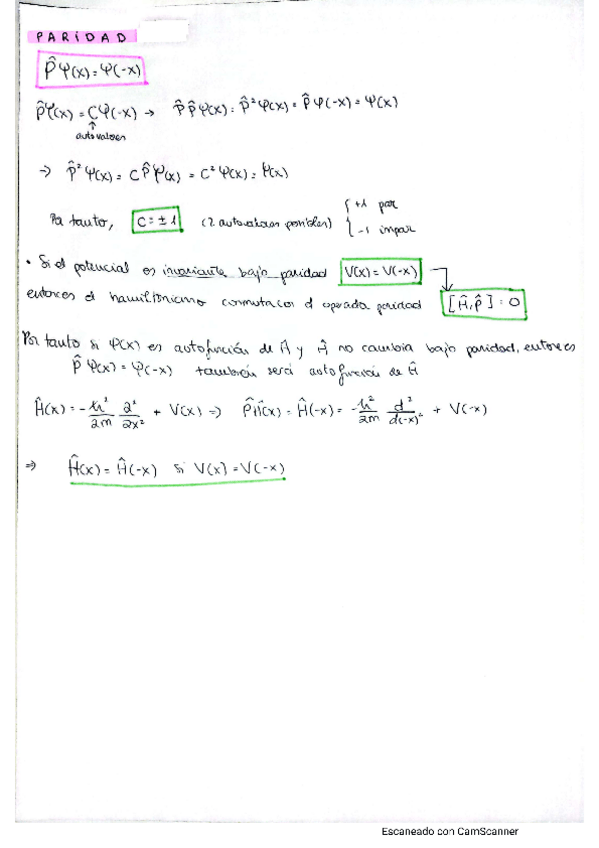 PARIDAD
P̂ψ(x) = ψ(-x)
P̂ψ(x) = Cψ(-x) → P̂P̂ψ(x) = P̂²ψ(x) = P̂ψ(-x) = ψ(x)
↑
autovalores
→ P̂²ψ(x) = C P̂ψ(x) = C²ψ(x) = ψ(x)
Por tanto, C = ±1 (2 autovalores posibles) { +1 par
-1 impar
• Si el potencial es invariante bajo paridad V(x) = V(-x)
entonces el hamiltoniano conmuta con el operador paridad [Ĥ, P̂] = 0
Por tanto si ψ(x) es autofunción de Ĥ y Ĥ no cambia bajo paridad, entonces
P̂ψ(x) = ψ(-x) también será autofunción de Ĥ
Ĥ(x) = -ħ²/2m ∂²/∂x² + V(x) ⇒ P̂Ĥ(x) = Ĥ(-x) = -ħ²/2m d²/d(-x)² + V(-x)
⇒ Ĥ(x) = Ĥ(-x) si V(x) = V(-x)
Escaneado con CamScanner